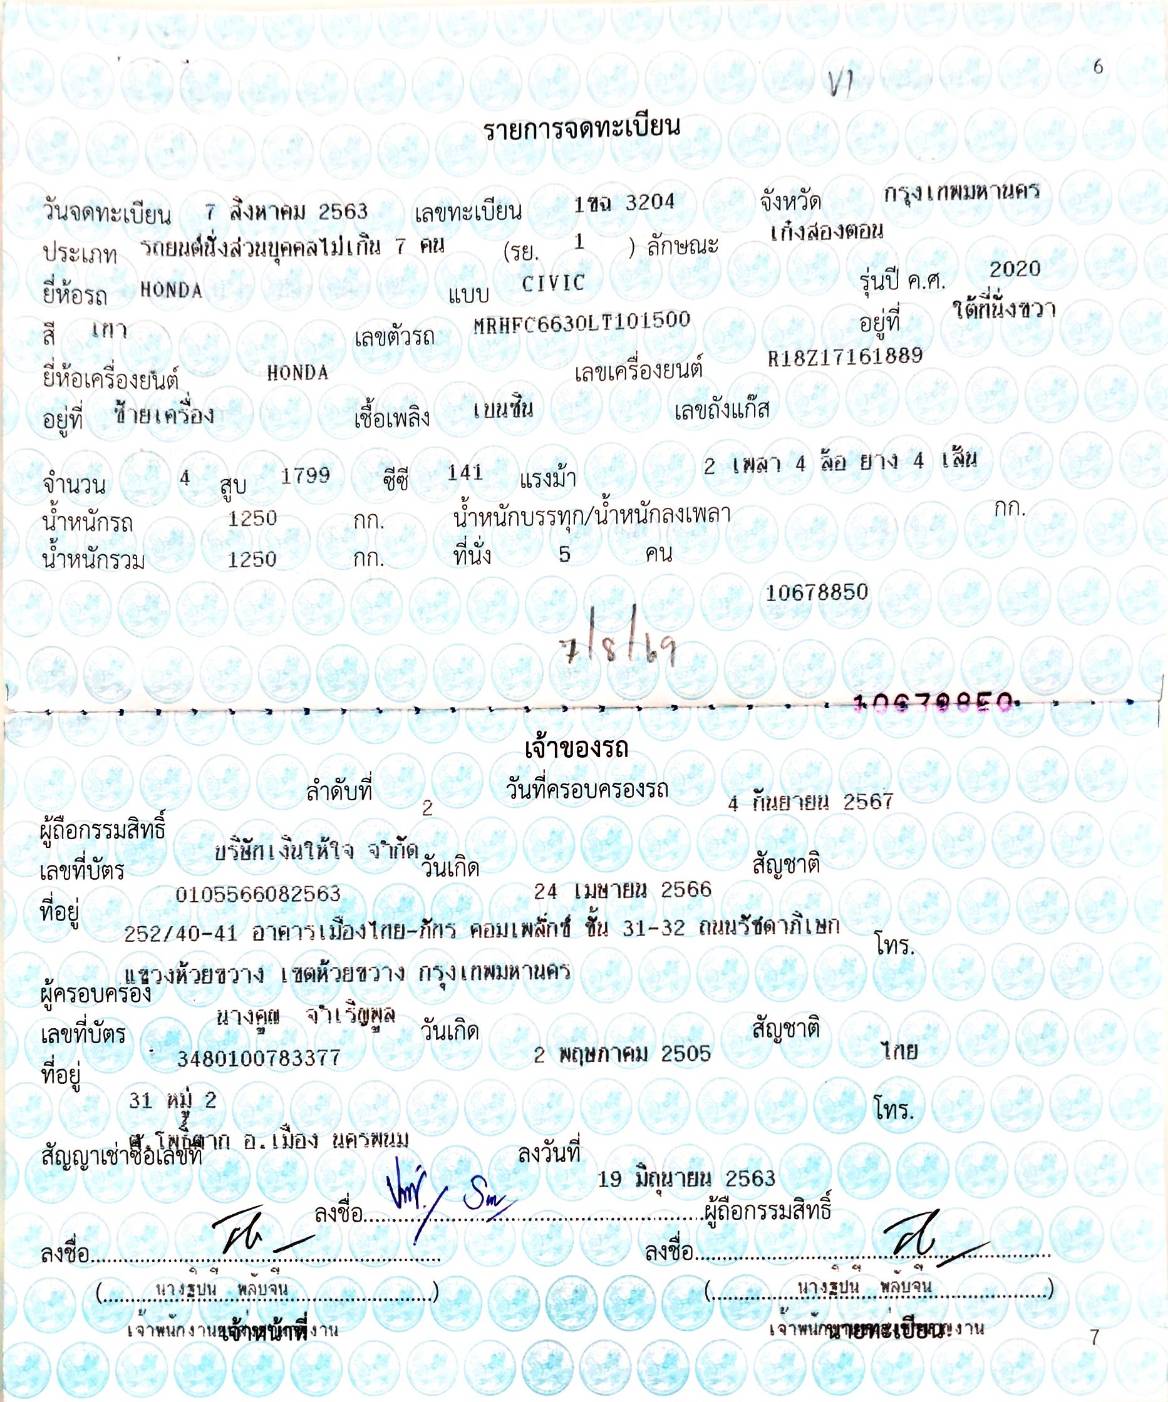 V1
6
รายการจดทะเบียน
วันจดทะเบียน 7 สิงหาคม 2563 เลขทะเบียน 1ขฉ 3204 จังหวัด กรุงเทพมหานคร
ประเภท รถยนต์นั่งส่วนบุคคลไม่เกิน 7 คน (รย. 1 ) ลักษณะ เก๋งสองตอน
ยี่ห้อรถ HONDA แบบ CIVIC รุ่นปี ค.ศ. 2020
สี เทา เลขตัวรถ MRHFC6630LT101500 อยู่ที่ ใต้ที่นั่งขวา
ยี่ห้อเครื่องยนต์ HONDA เลขเครื่องยนต์ R18Z17161889
อยู่ที่ ซ้ายเครื่อง เชื้อเพลิง เบนซิน เลขถังแก๊ส
จำนวน 4 สูบ 1799 ซีซี 141 แรงม้า 2 เพลา 4 ล้อ ยาง 4 เส้น
น้ำหนักรถ 1250 กก. น้ำหนักบรรทุก/น้ำหนักลงเพลา กก.
น้ำหนักรวม 1250 กก. ที่นั่ง 5 คน
10678850
7/8/69
10678850
เจ้าของรถ
ลำดับที่ 2 วันที่ครอบครองรถ 4 กันยายน 2567
ผู้ถือกรรมสิทธิ์ บริษัทเงินให้ใจ จำกัด
เลขที่บัตร 0105566082563 วันเกิด 24 เมษายน 2566 สัญชาติ
ที่อยู่ 252/40-41 อาคารเมืองไทย-ภัทร คอมเพล็กซ์ ชั้น 31-32 ถนนรัชดาภิเษก โทร.
แขวงห้วยขวาง เขตห้วยขวาง กรุงเทพมหานคร
ผู้ครอบครอง นางคูณ จำเริญพูล
เลขที่บัตร 3480100783377 วันเกิด 2 พฤษภาคม 2505 สัญชาติ ไทย
ที่อยู่ 31 หมู่ 2 โทร.
ต.โพธิ์ตาก อ.เมือง นครพนม
สัญญาเช่าซื้อเลขที่ ลงวันที่ 19 มิถุนายน 2563
ลงชื่อ ผู้ถือกรรมสิทธิ์
ลงชื่อ ลงชื่อ
(นางฐิปนี พลับจีน) (นางฐิปนี พลับจีน)
เจ้าหน้าที่ นายทะเบียน
7